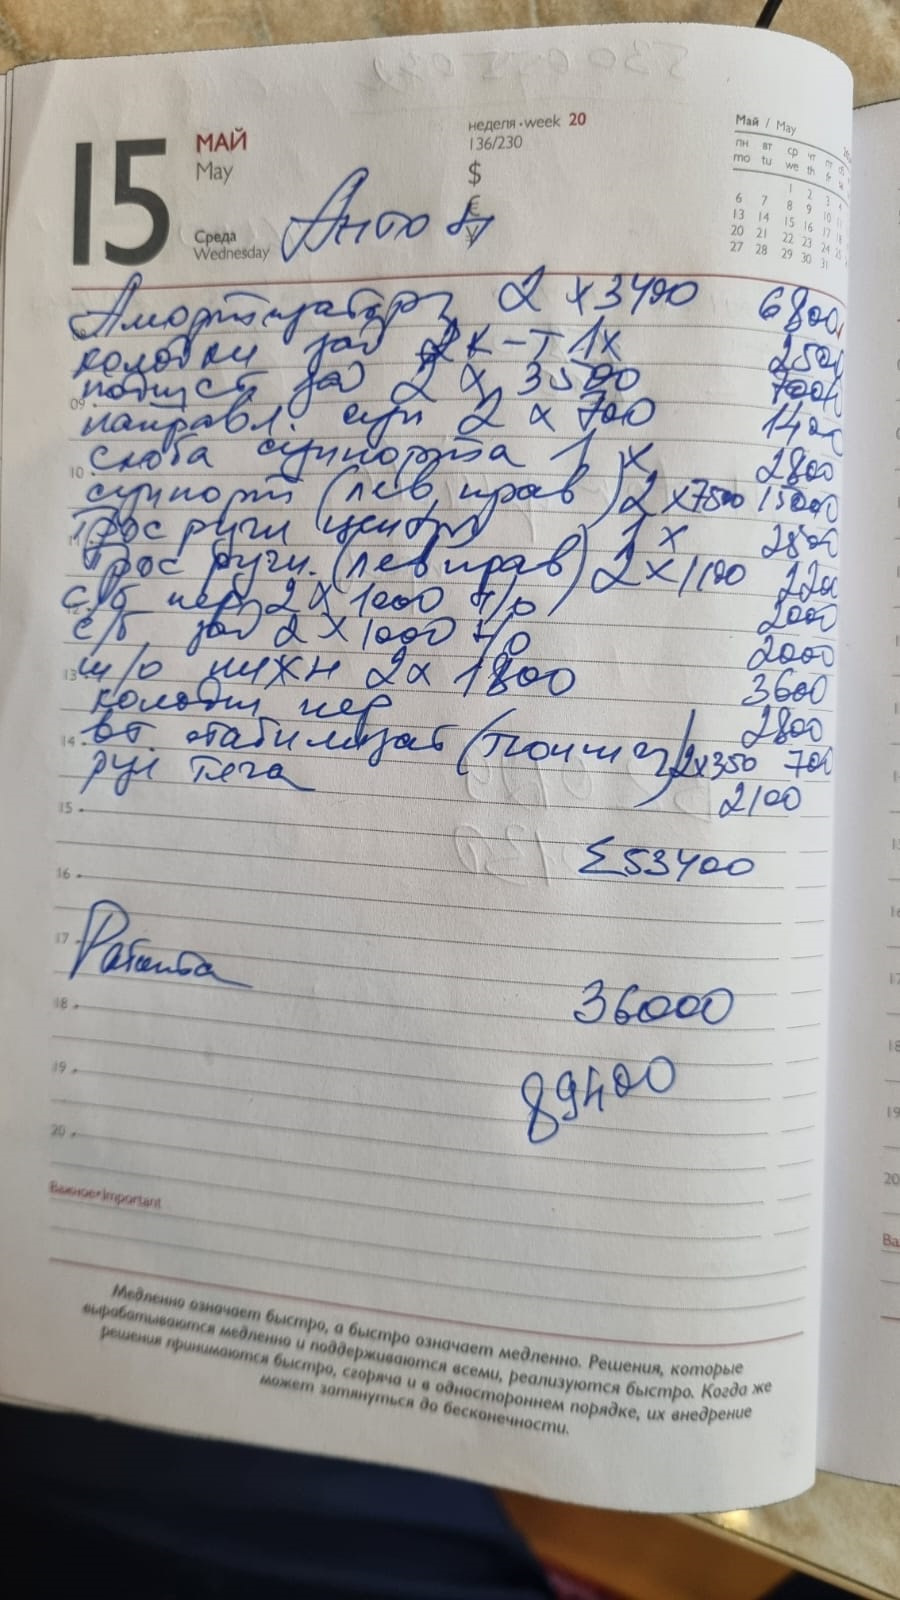 15
МАЙ
May
Среда
Wednesday
неделя • week 20
136/230
$
€
¥
Май / May
пн вт ср чт пт сб
mo tu we th fr
1 2 3 4
6 7 8 9 10 11
13 14 15 16 17 18
20 21 22 23 24 25
27 28 29 30 31
Амортизаторы 2 x 3400 6800
колодки зад 2 к-т 1x 2500
подшуст зад 2 x 3500 7000
направл. суп 2 x 700 1400
скоба суппорта 1 x 2800
суппорт (лев, прав) 2 x 7500 15000
Трос ручн центр 1 x 2800
Трос ручн. (лев прав) 2 x 1100 2200
с/б пер 2 x 1000 н/о 2000
с/б зад 2 x 1000 н/о 2000
ш/о нижн 2 x 1800 3600
колодки пер 2800
вт стабилизат 2x350 700
рул тяга 2100
Σ 53400
Работа
36000
89400
09
10
11
12
13
14
15
16
17
18
19
20
Важное • Important
Медленно означает быстро, а быстро означает медленно. Решения, которые
вырабатываются медленно и поддерживаются всеми, реализуются быстро. Когда же
решения принимаются быстро, сгоряча и в одностороннем порядке, их внедрение
может затянуться до бесконечности.